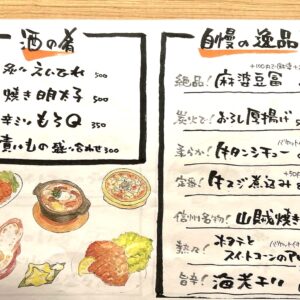 酒の肴
炙りえいひれ 500
焼き明太子 500
辛みそもろQ 350
漬けもの盛り合わせ 300
自慢の逸品
絶品！麻婆豆腐
炭火で！おろし厚揚げ 5
柔らか！牛タンシチュー
定番！牛スジ煮込み
+50円
信州名物！山賊焼き
熱々！ホタテと
スイートコーンのア
旨辛！海老チリ